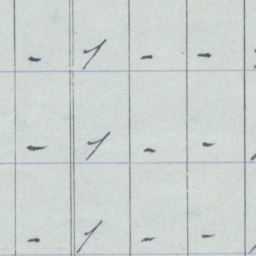 - 1 - -
- 1 - -
- 1 - -